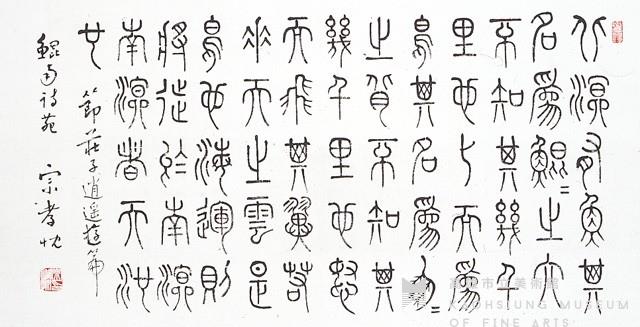 北溟有魚其
名為鯤=之大
不知其幾千
里也化而為
鳥其名為鵬=
之背不知其
幾千里也怒
而飛其翼若
垂天之雲是
鳥也海運則
將徙於南溟
南溟者天池
也
節莊子逍遙遊篇
鯤南詩苑 宗孝忱
高雄市立美術館
KAOHSIUNG MUSEUM
OF FINE ARTS